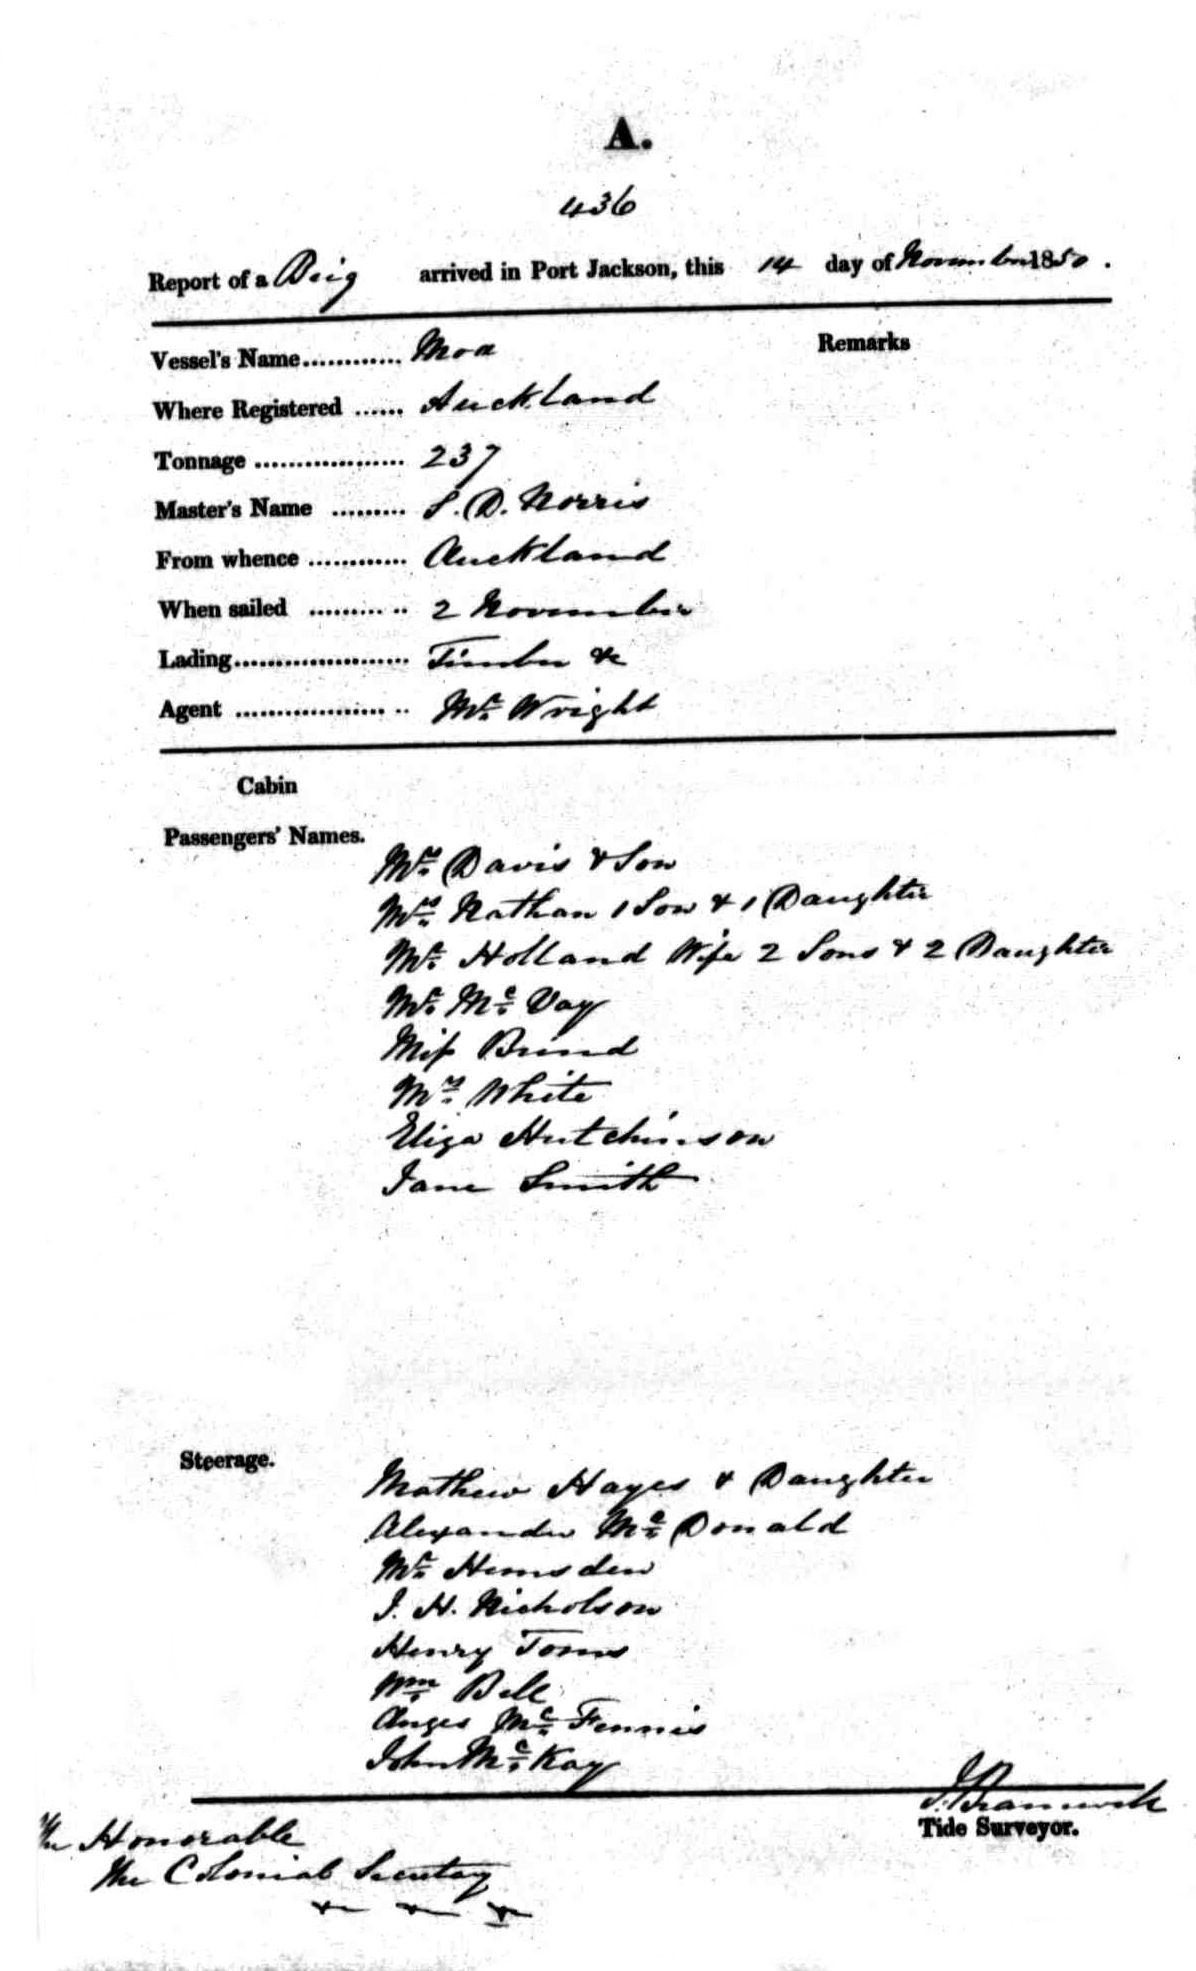 A.
436
Report of a Brig arrived in Port Jackson, this 14 day of November 1850.
Remarks
Vessel's Name............ Moa
Where Registered ...... Auckland
Tonnage .................. 237
Master's Name ......... S. D. Norris
From whence ............ Auckland
When sailed ......... .. 2 November
Lading..................... Timber &c
Agent .................. .. Mr. Wright
Cabin
Passengers' Names.
Mrs. Davis & Son
Mrs. Nathan 1 Son & 1 Daughter
Mr. Holland Wife 2 Sons & 2 Daughter
Mr. Mc. Vay
Miss Brind
Mrs. White
Eliza Hutchinson
Jane Smith
Steerage.
Mathew Hayes & Daughter
Alexander Mc. Donald
Mr. Hemsden
J. H. Nicholson
Henry Toms
Wm. Bell
Anges Mc. Fennis
John Mc. Kay
Tide Surveyor.
The Honorable
The Colonial Secretary
&c &c &c